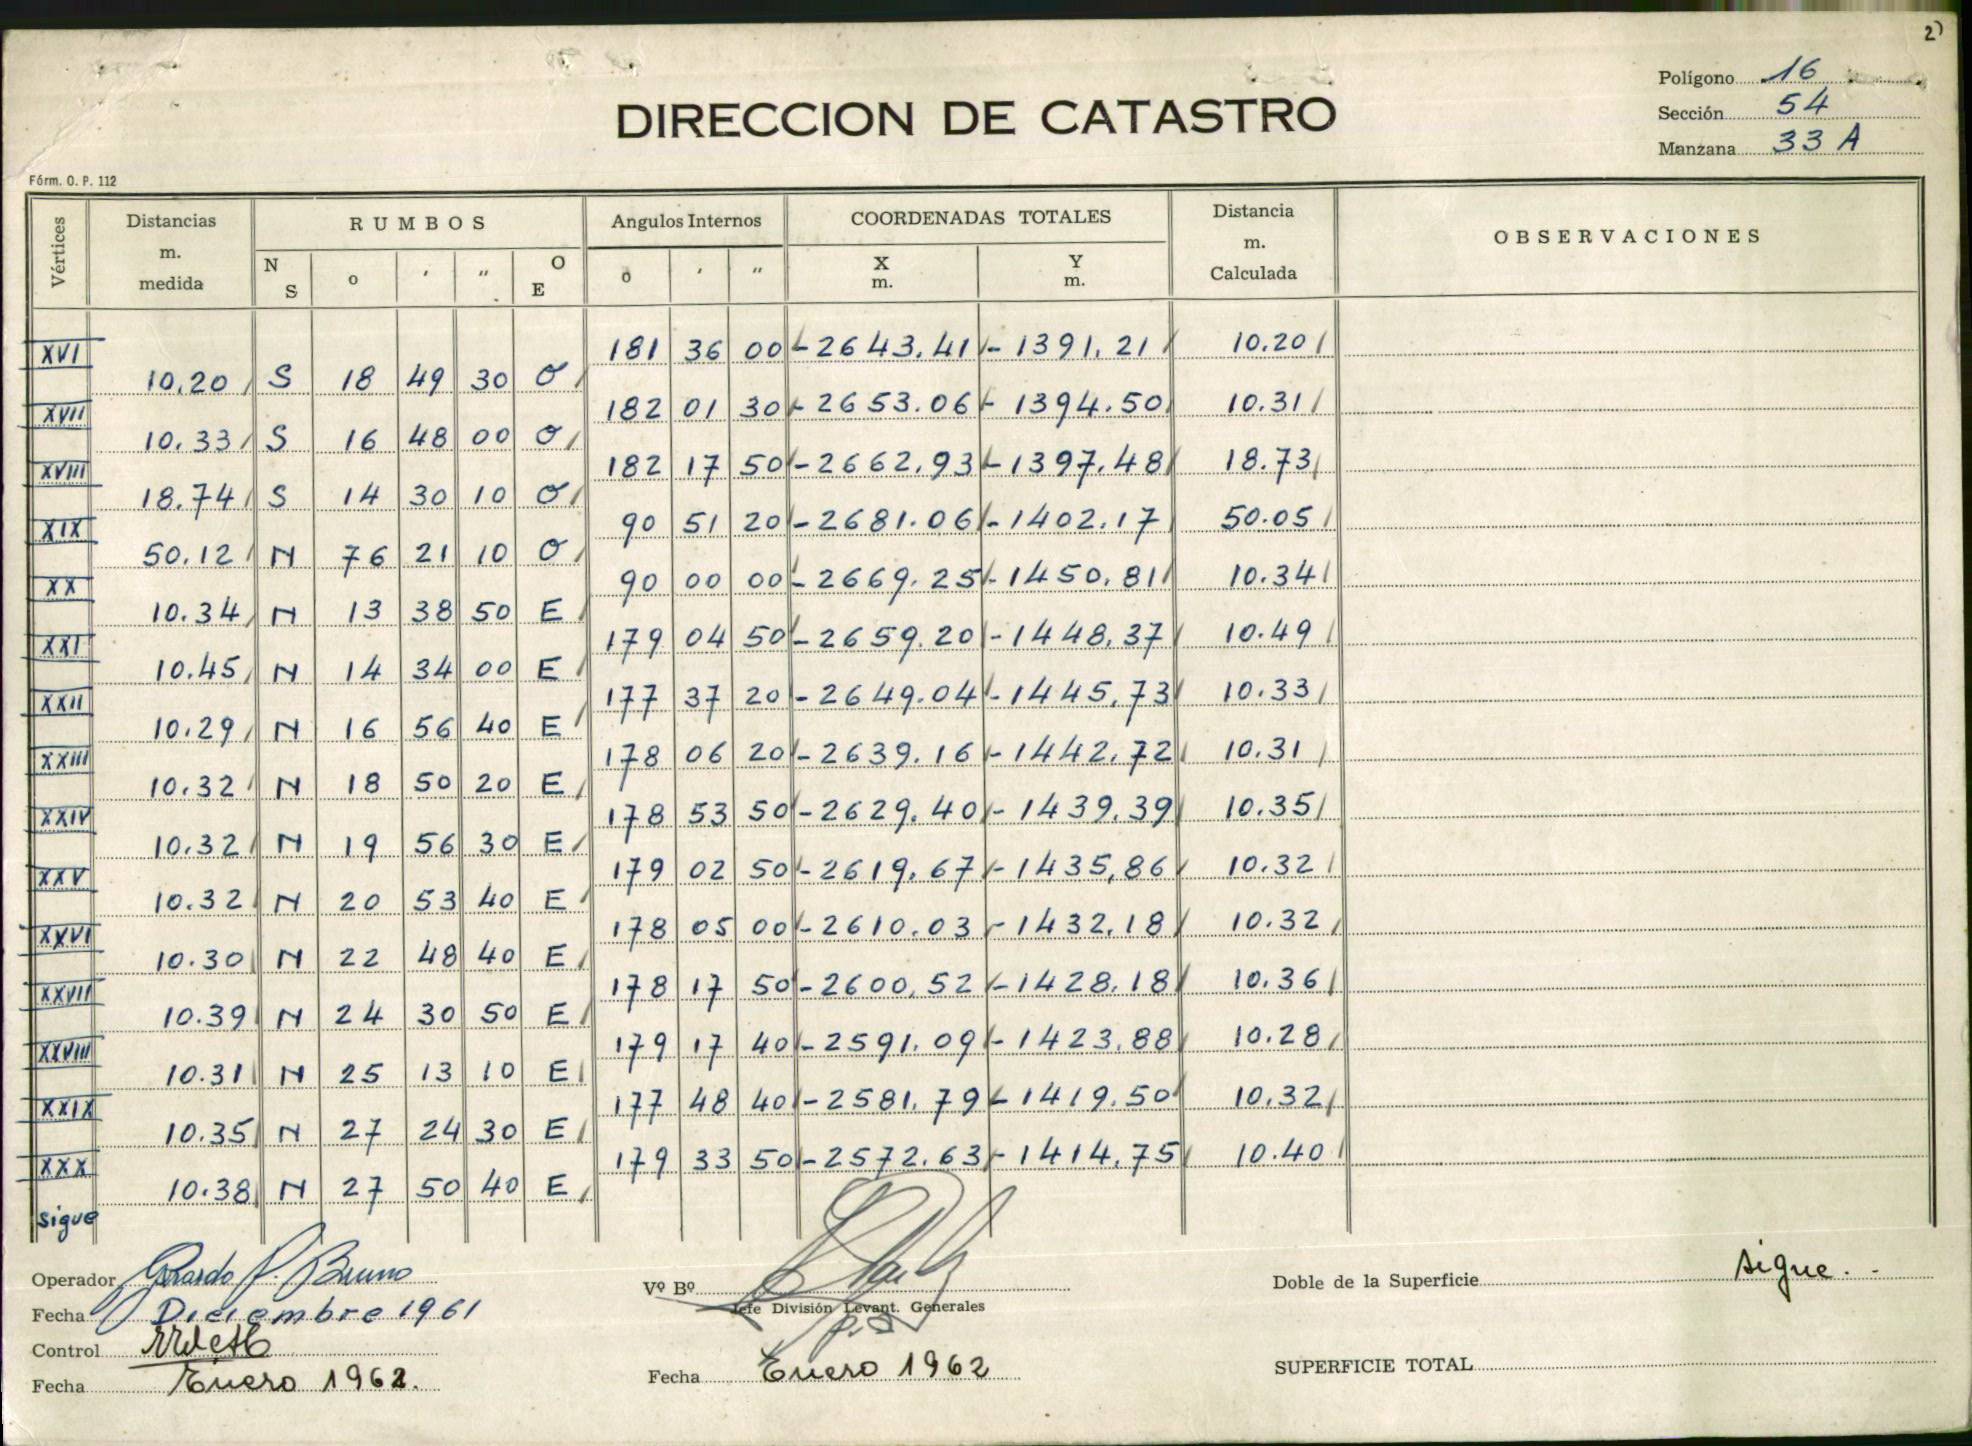 2)
Polígono 16
Sección 54
Manzana 33 A
DIRECCION DE CATASTRO
Fórm. O. P. 112
Vértices Distancias m. medida RUMBOS N S o ' " O E Angulos Internos o ' " COORDENADAS TOTALES X m. Y m. Distancia m. Calculada OBSERVACIONES
XVI 181 36 00 -2643.41 -1391.21 10.20
10.20 S 18 49 30 O
XVII 182 01 30 -2653.06 -1394.50 10.31
10.33 S 16 48 00 O
XVIII 182 17 50 -2662.93 -1397.48 18.73
18.74 S 14 30 10 O
XIX 90 51 20 -2681.06 -1402.17 50.05
50.12 N 76 21 10 O
XX 90 00 00 -2669.25 -1450.81 10.34
10.34 N 13 38 50 E
XXI 179 04 50 -2659.20 -1448.37 10.49
10.45 N 14 34 00 E
XXII 177 37 20 -2649.04 -1445.73 10.33
10.29 N 16 56 40 E
XXIII 178 06 20 -2639.16 -1442.72 10.31
10.32 N 18 50 20 E
XXIV 178 53 50 -2629.40 -1439.39 10.35
10.32 N 19 56 30 E
XXV 179 02 50 -2619.67 -1435.86 10.32
10.32 N 20 53 40 E
XXVI 178 05 00 -2610.03 -1432.18 10.32
10.30 N 22 48 40 E
XXVII 178 17 50 -2600.52 -1428.18 10.36
10.39 N 24 30 50 E
XXVIII 179 17 40 -2591.09 -1423.88 10.28
10.31 N 25 13 10 E
XXIX 177 48 40 -2581.79 -1419.50 10.32
10.35 N 27 24 30 E
XXX 179 33 50 -2572.63 -1414.75 10.40
10.38 N 27 50 40 E
sigue
Operador Gerardo P. Bruno
Fecha Diciembre 1961
Control
Fecha Enero 1962.
Vº Bº
Jefe División Levant. Generales
Fecha Enero 1962
Doble de la Superficie sigue.-
SUPERFICIE TOTAL